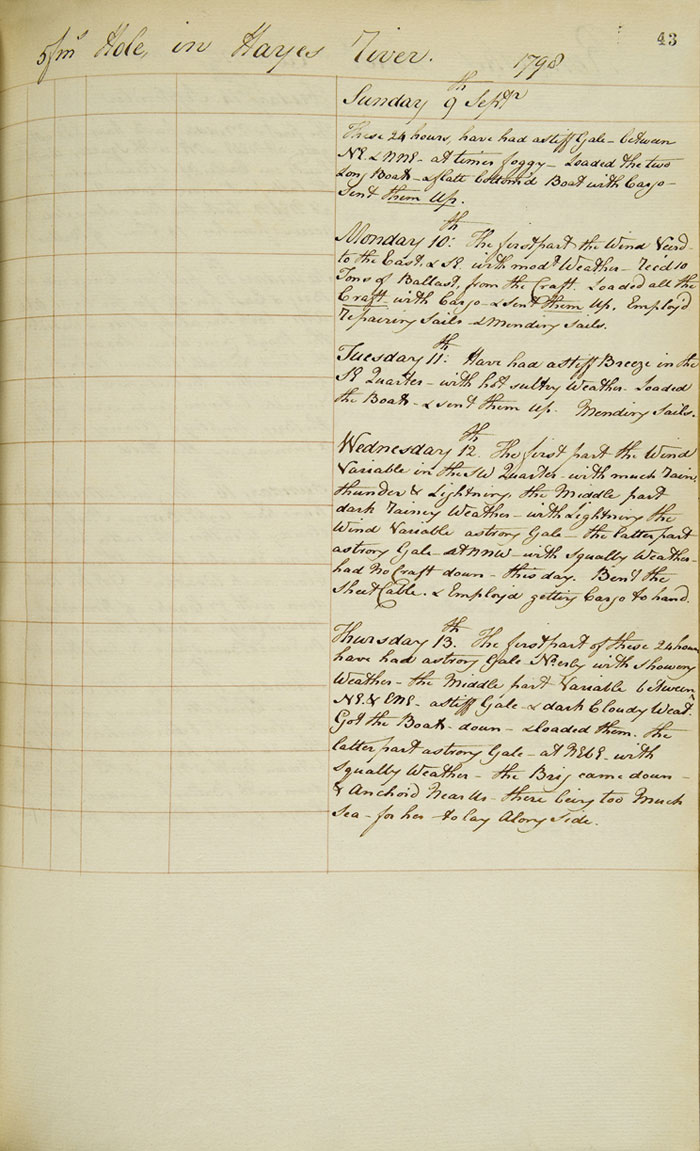 43
5 fm Hole, in Hayes River. 1798
Sunday 9th Septr
These 24 hours, have had a stiff Gale - between
NE & NNE - at times foggy - Loaded the two
Long Boats - & flatt bottom'd Boat with Cargo -
Sent them Up.
Monday 10th: The first part the Wind Veer'd
to the East, & SE with modt Weather - Rec'd 10
Tons of Ballast, from the Craft. Loaded all the
Craft with Cargo - & sent them Up. Employ'd
repairing Sails & Mending Sails.
Tuesday 11th: Have had a stiff Breeze in the
SE Quarter - with hot sultry Weather. Loaded
the Boats - & sent them Up. Mending Sails.
Wednesday 12th. The first part the Wind
Variable in the SW Quarter - with much rain,
thunder & Lightning, the Middle part
dark rainey Weather - with Lightning the
Wind Variable a strong Gale - the latter part
a strong Gale - at NNW - with Squally Weather -
had No Craft down - this day. Bent the
Sheet Cable. & Employ'd getting Cargo to hand.
Thursday 13th. The first part of these 24 hours
have had a strong Gale Nerly with Showery
Weather - the Middle part Variable between
NE & ENE - a stiff Gale - & dark Cloudy Weat.
Got the Boats down - & loaded them. The
latter part a strong Gale - at NEbE - with
Squally Weather - the Brig came down -
& Anchor'd Near Us - there being too Much
Sea - for her - to lay Along Side.